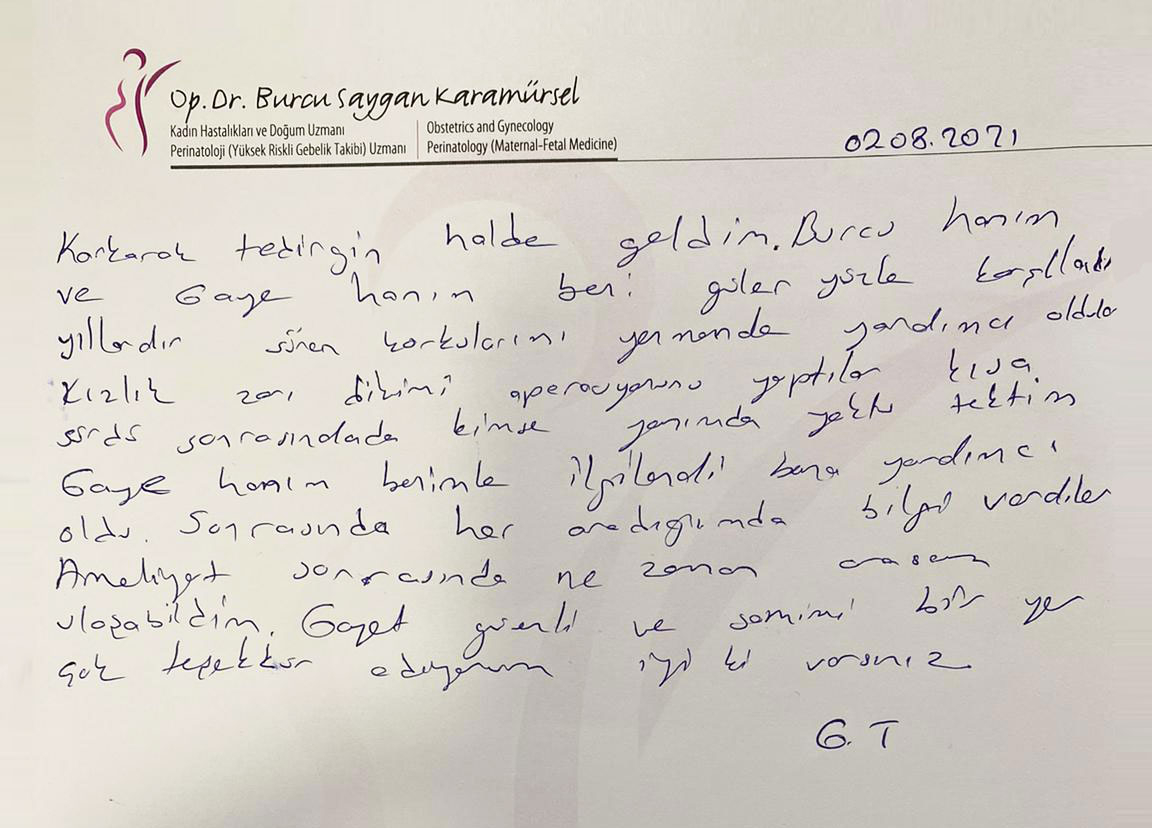 Op. Dr. Burcu Saygan Karamürsel
Kadın Hastalıkları ve Doğum Uzmanı
Perinatoloji (Yüksek Riskli Gebelik Takibi) Uzmanı
Obstetrics and Gynecology
Perinatology (Maternal-Fetal Medicine)
02 08.2021
Korkarak tedirgin halde geldim. Burcu hanım
ve Gaye hanım beni güler yüzle karşılladı
yıllardır süren korkularımı yenmemde yardımcı oldular
Kızlık zarı dikimi operasyonunu yaptılar kısa
sonrasındada kimse yanımda yoktu tektim
Gaye hanım benimle ilgilendi bana yardımcı
oldu. Sonrasında her aradığımda bilgi verdiler
Ameliyat sonrasında ne zaman arasam
ulaşabildim. Gayet güvenli ve samimi bir yer
çok teşekkür ediyorum iyi ki varsınız
G. T